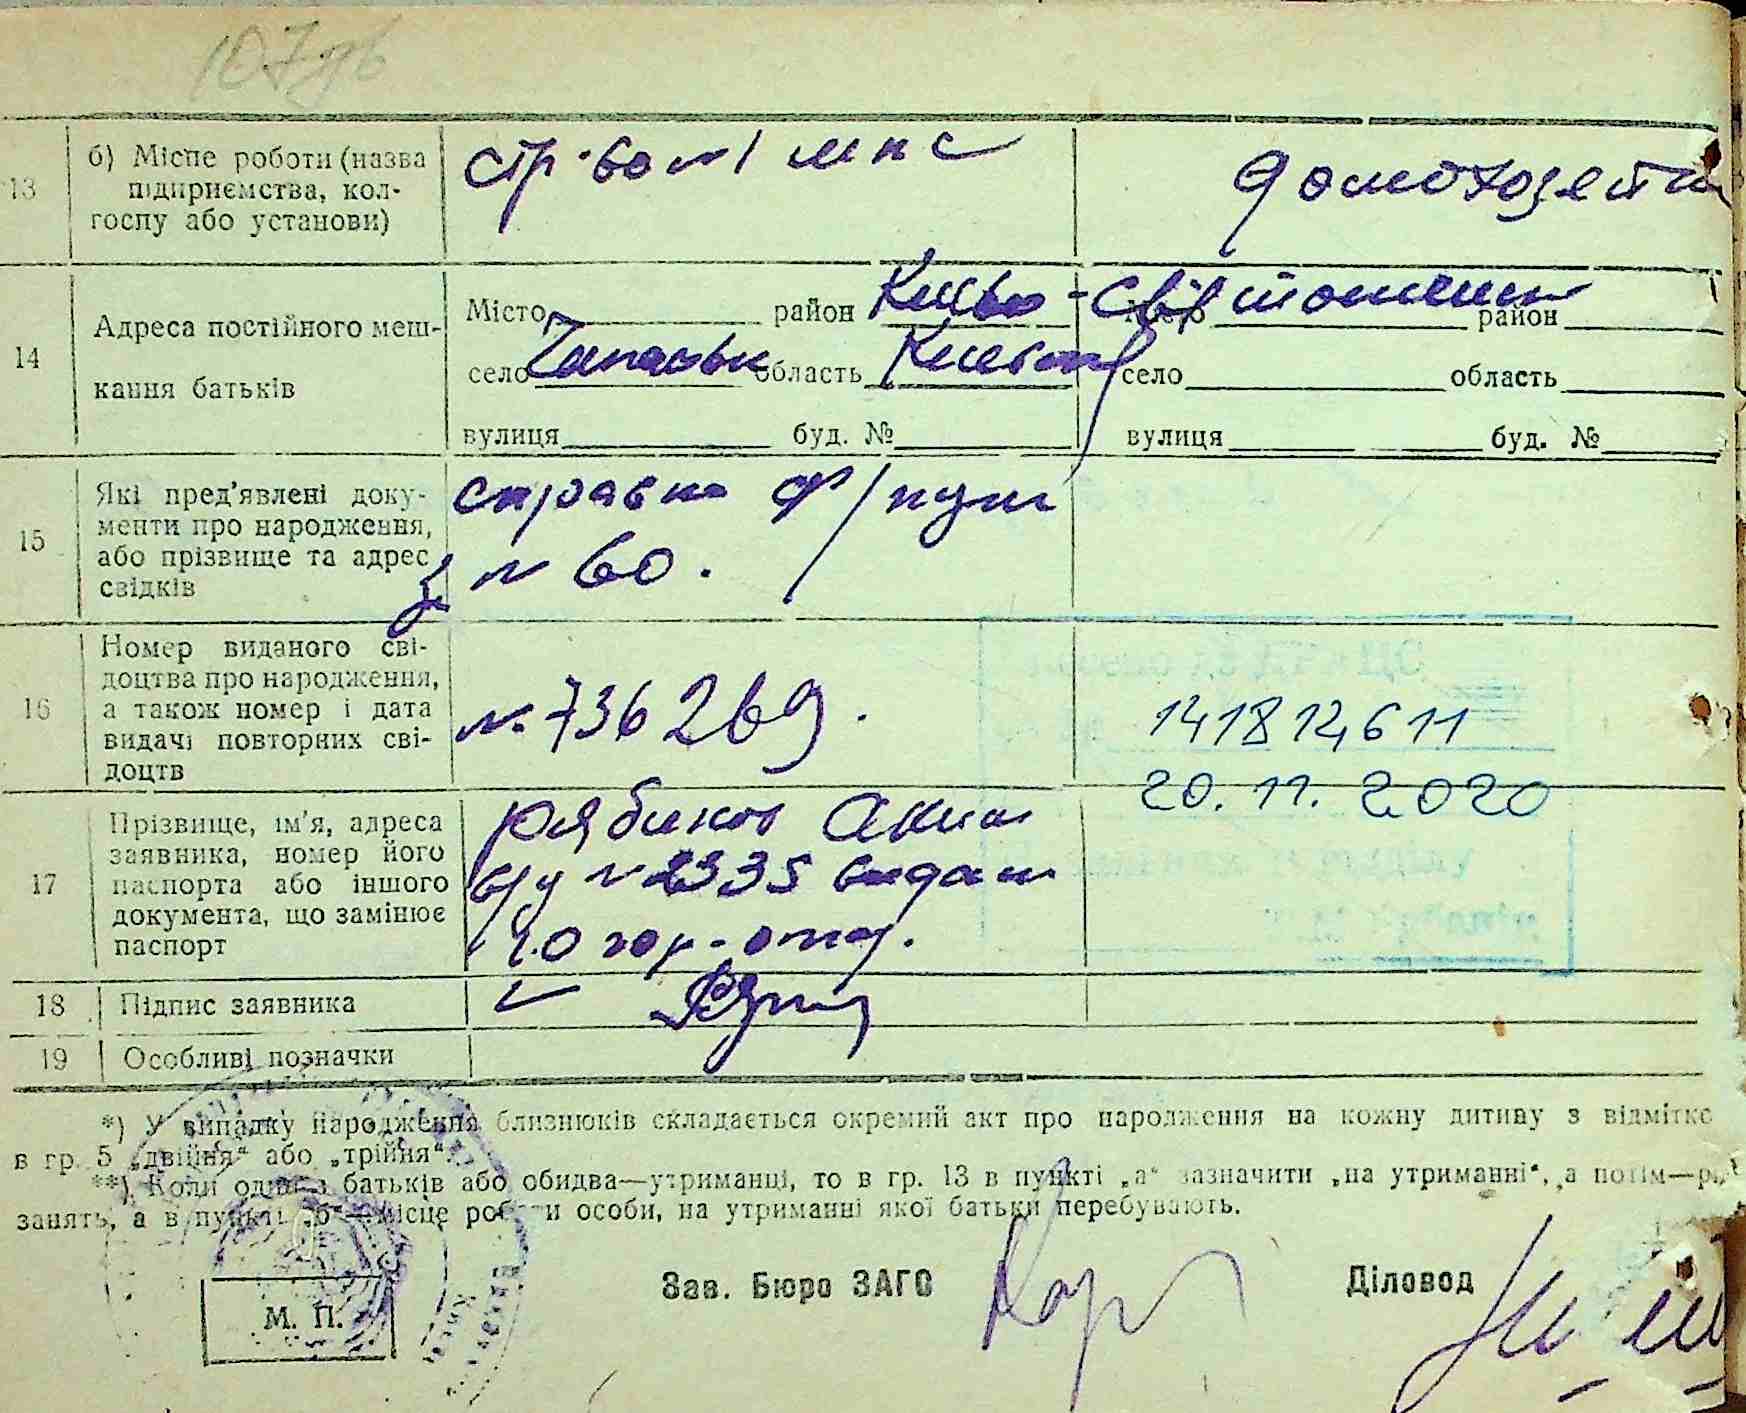 107зв
13
б) Місце роботи (назва
підприємства, кол-
госпу або установи)
домохозяйка
14
Адреса постійного меш-
кання батьків
Місто район Києво-Святошинськ район
село Чапаєвка область Київськ село область
вулиця буд. № вулиця буд. №
15
Які пред’явлені доку-
менти про народження,
або прізвище та адрес
свідків
справка ф/пун
№ 60.
16
Номер виданого сві-
доцтва про народження,
а також номер і дата
видачі повторних сві-
доцтв
№ 736269.
141812611
20.11.2020
17
Прізвище, ім’я, адреса
заявника, номер його
паспорта або іншого
документа, що замінює
паспорт
Рябинов Аким
в/у № 2335 видан
18
Підпис заявника
19
Особливі позначки
*) У випадку народження близнюків складається окремий акт про народження на кожну дитину з відмітко
в гр. 5 „двійня“ або „трійня“.
**) Коли один з батьків або обидва—утриманці, то в гр. 13 в пункті „а“ зазначити „на утриманні“, а потім—р
занять, а в пункті „б“ місце роботи особи, на утриманні якої батьки перебувають.
Зав. Бюро ЗАГС
Діловод
М. П.